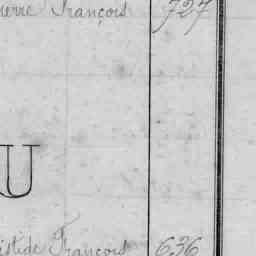 ierre François 727
U
istide François 636